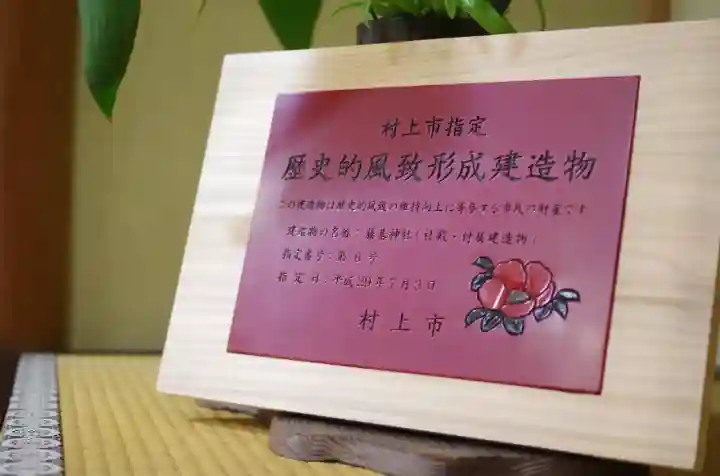 村上市指定
歴史的風致形成建造物
この建造物は歴史的風致の維持向上に寄与する市民の財産です
建造物の名称:藤基神社(社殿・付属建造物)
指定番号:第6号
指定日:平成29年7月3日
村上市